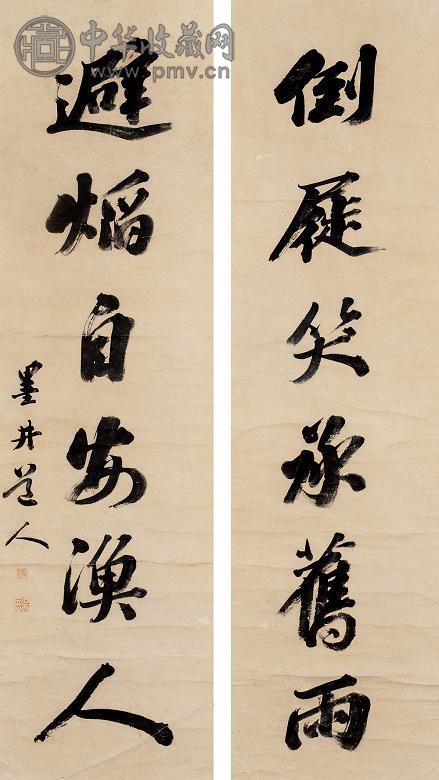 倒屣笑承舊雨
避㷄自安漁人
墨井道人
中华收藏网
www.pmv.cn